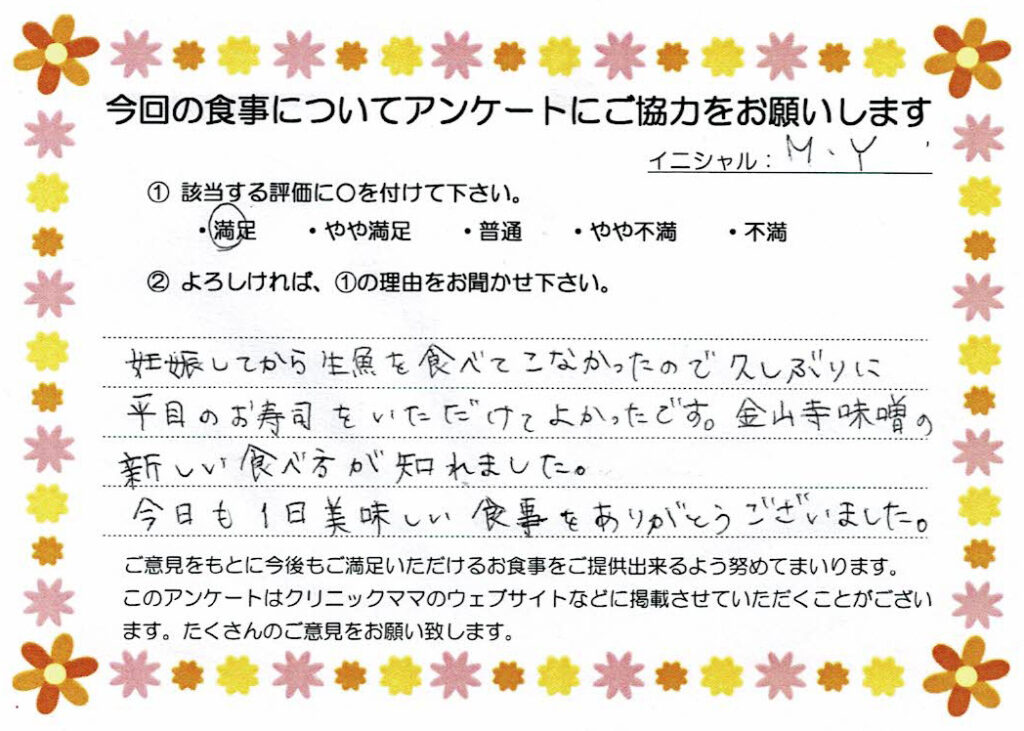 今回の食事についてアンケートにご協力をお願いします
イニシャル： M、Y
① 該当する評価に○を付けて下さい。
・満足 ・やや満足 ・普通 ・やや不満 ・不満
② よろしければ、①の理由をお聞かせ下さい。
妊娠してから生魚を食べてこなかったので久しぶりに
平目のお寿司をいただけてよかったです。金山寺味噌の
新しい食べ方が知れました。
今日も1日美味しい食事をありがとうございました。
ご意見をもとに今後もご満足いただけるお食事をご提供出来るよう努めてまいります。
このアンケートはクリニックママのウェブサイトなどに掲載させていただくことがござい
ます。たくさんのご意見をお願い致します。